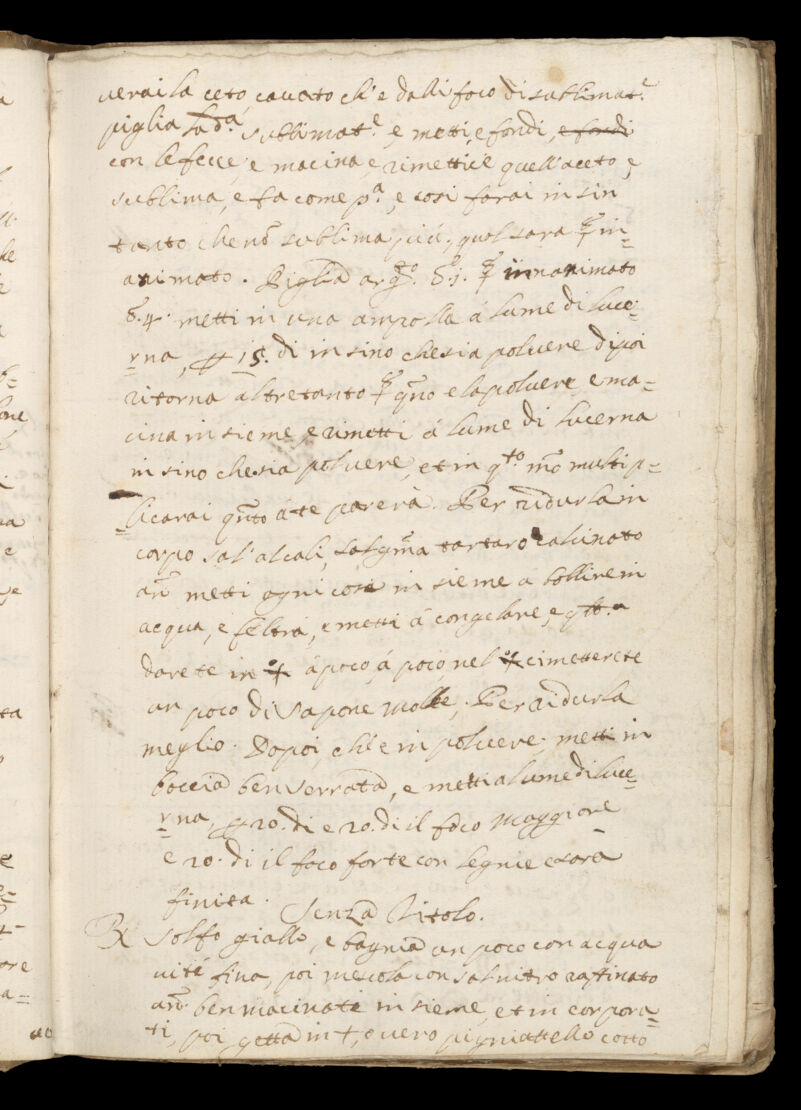 verai la ceto, cavato ch'è dalli foco di sublimat.e
piglia la d.a sublimat.e e metti, e fondi, e fondi
con le fecce, e macina, e rimettice quell'aceto, e
sublima, e fa come p.a, e cosi farai in sin
tanto che nō sublima più, qual sara ☿ in-
animato. Piglia ar.go ℥.j. ☿ innanimato
℥.4. metti in una ampolla á lume di luce-
rna, ꝑ 15. di in sino che sia polvere dipoi
ritorna altretanto ☿ qn̄o e la polvere, e ma-
cina insieme, e rimetti á lume di lucerna
in sino che sia polvere, et in q.to mō multip-
licarai qn̄to á te parerà. Per ridurla in
corpo sal'alcali, sal gēma tartaro calcinato
an̄ metti ogni cosa in sieme á bollire in
acqua, e feltra, e metti á congelare, e
darete in á poco, á poco, nel ci metterete
un poco di sapone molle, Per ridurla
meglio. Dopoi, ch'è in polvere, metti in
boccia ben serrata, e metti a lume di luce-
rna, ꝑ 20. di e 20. di il foco maggiore
e 20. di il foco forte con legnie e sara
finita.
Senza Titolo.
℞ Solfo giallo, e bagnia un poco con acqua
vite fina, poi mescola con salnitro raffinato
an̄. ben macinate in sieme, et in corpora-
ti, poi getta in +, overo pigniattello cotto